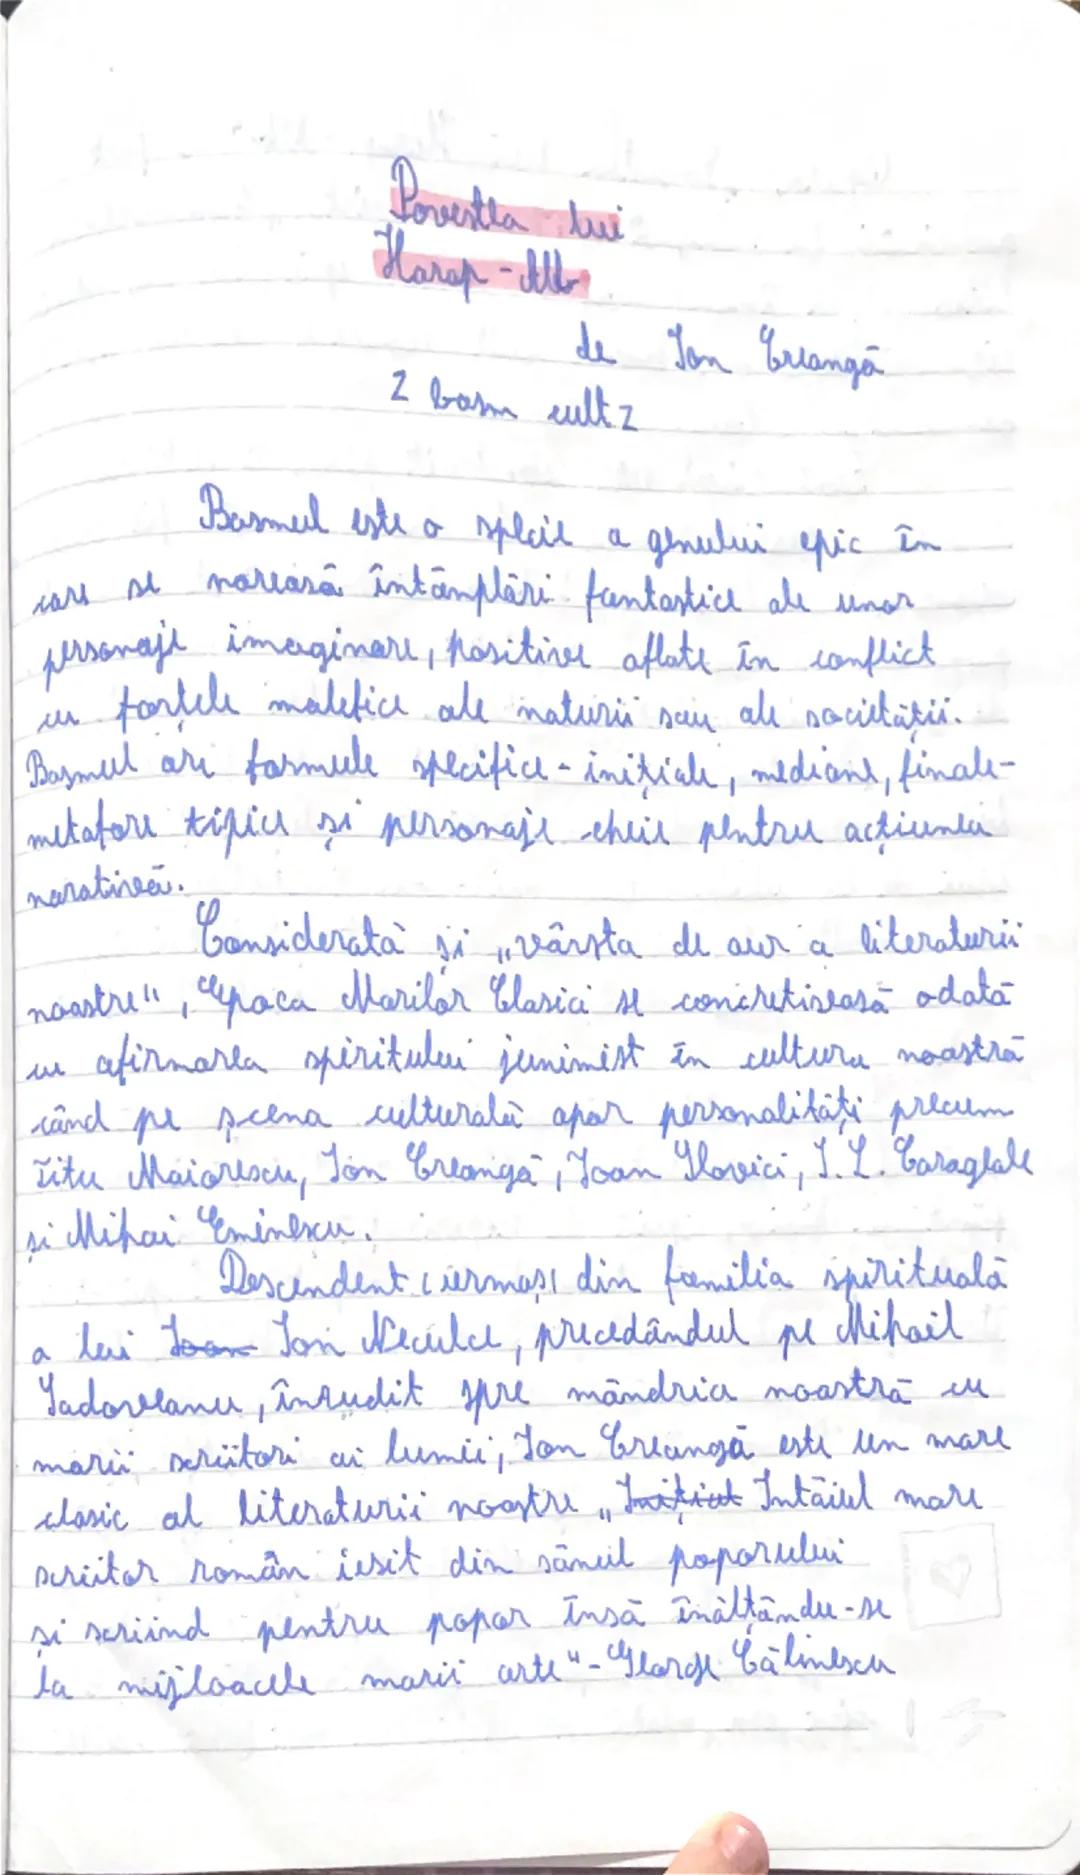 Povestea lui
Harap-Alb
de Ion Creangă
~ basm cult ~
Basmul este o specie a genului epic în
care se narează întâmplări fantastice ale unor
personaje imaginare, pozitive aflate în conflict
cu forțele malefice ale naturii sau ale societății.
Basmul are formule specifice - inițiale, mediane, finale -
metafore tipice și personaje cheie pentru acțiunea
narativă.
Considerată și „vârsta de aur a literaturii
noastre", Epoca Marilor Clasici se concretizează odată
cu afirmarea spiritului junimist în cultura noastră
când pe scena culturală apar personalități precum
Titu Maiorescu, Ion Creangă, Ioan Slavici, I. L. Caragiale
și Mihai Eminescu.
Descendent (urmaș) din familia spirituală
a lui Ioan Ion Neculce, precedândul pe Mihail
Sadoveanu, înrudit spre mândria noastră cu
marii scriitori ai lumii, Ion Creangă este un mare
clasic al literaturii noastre „Inițiat Întâiul mare
scriitor român iesit din sânul poporului
și scriind pentru popor însă înălțându-se
la mijloacele marii arte" - George Călinescu